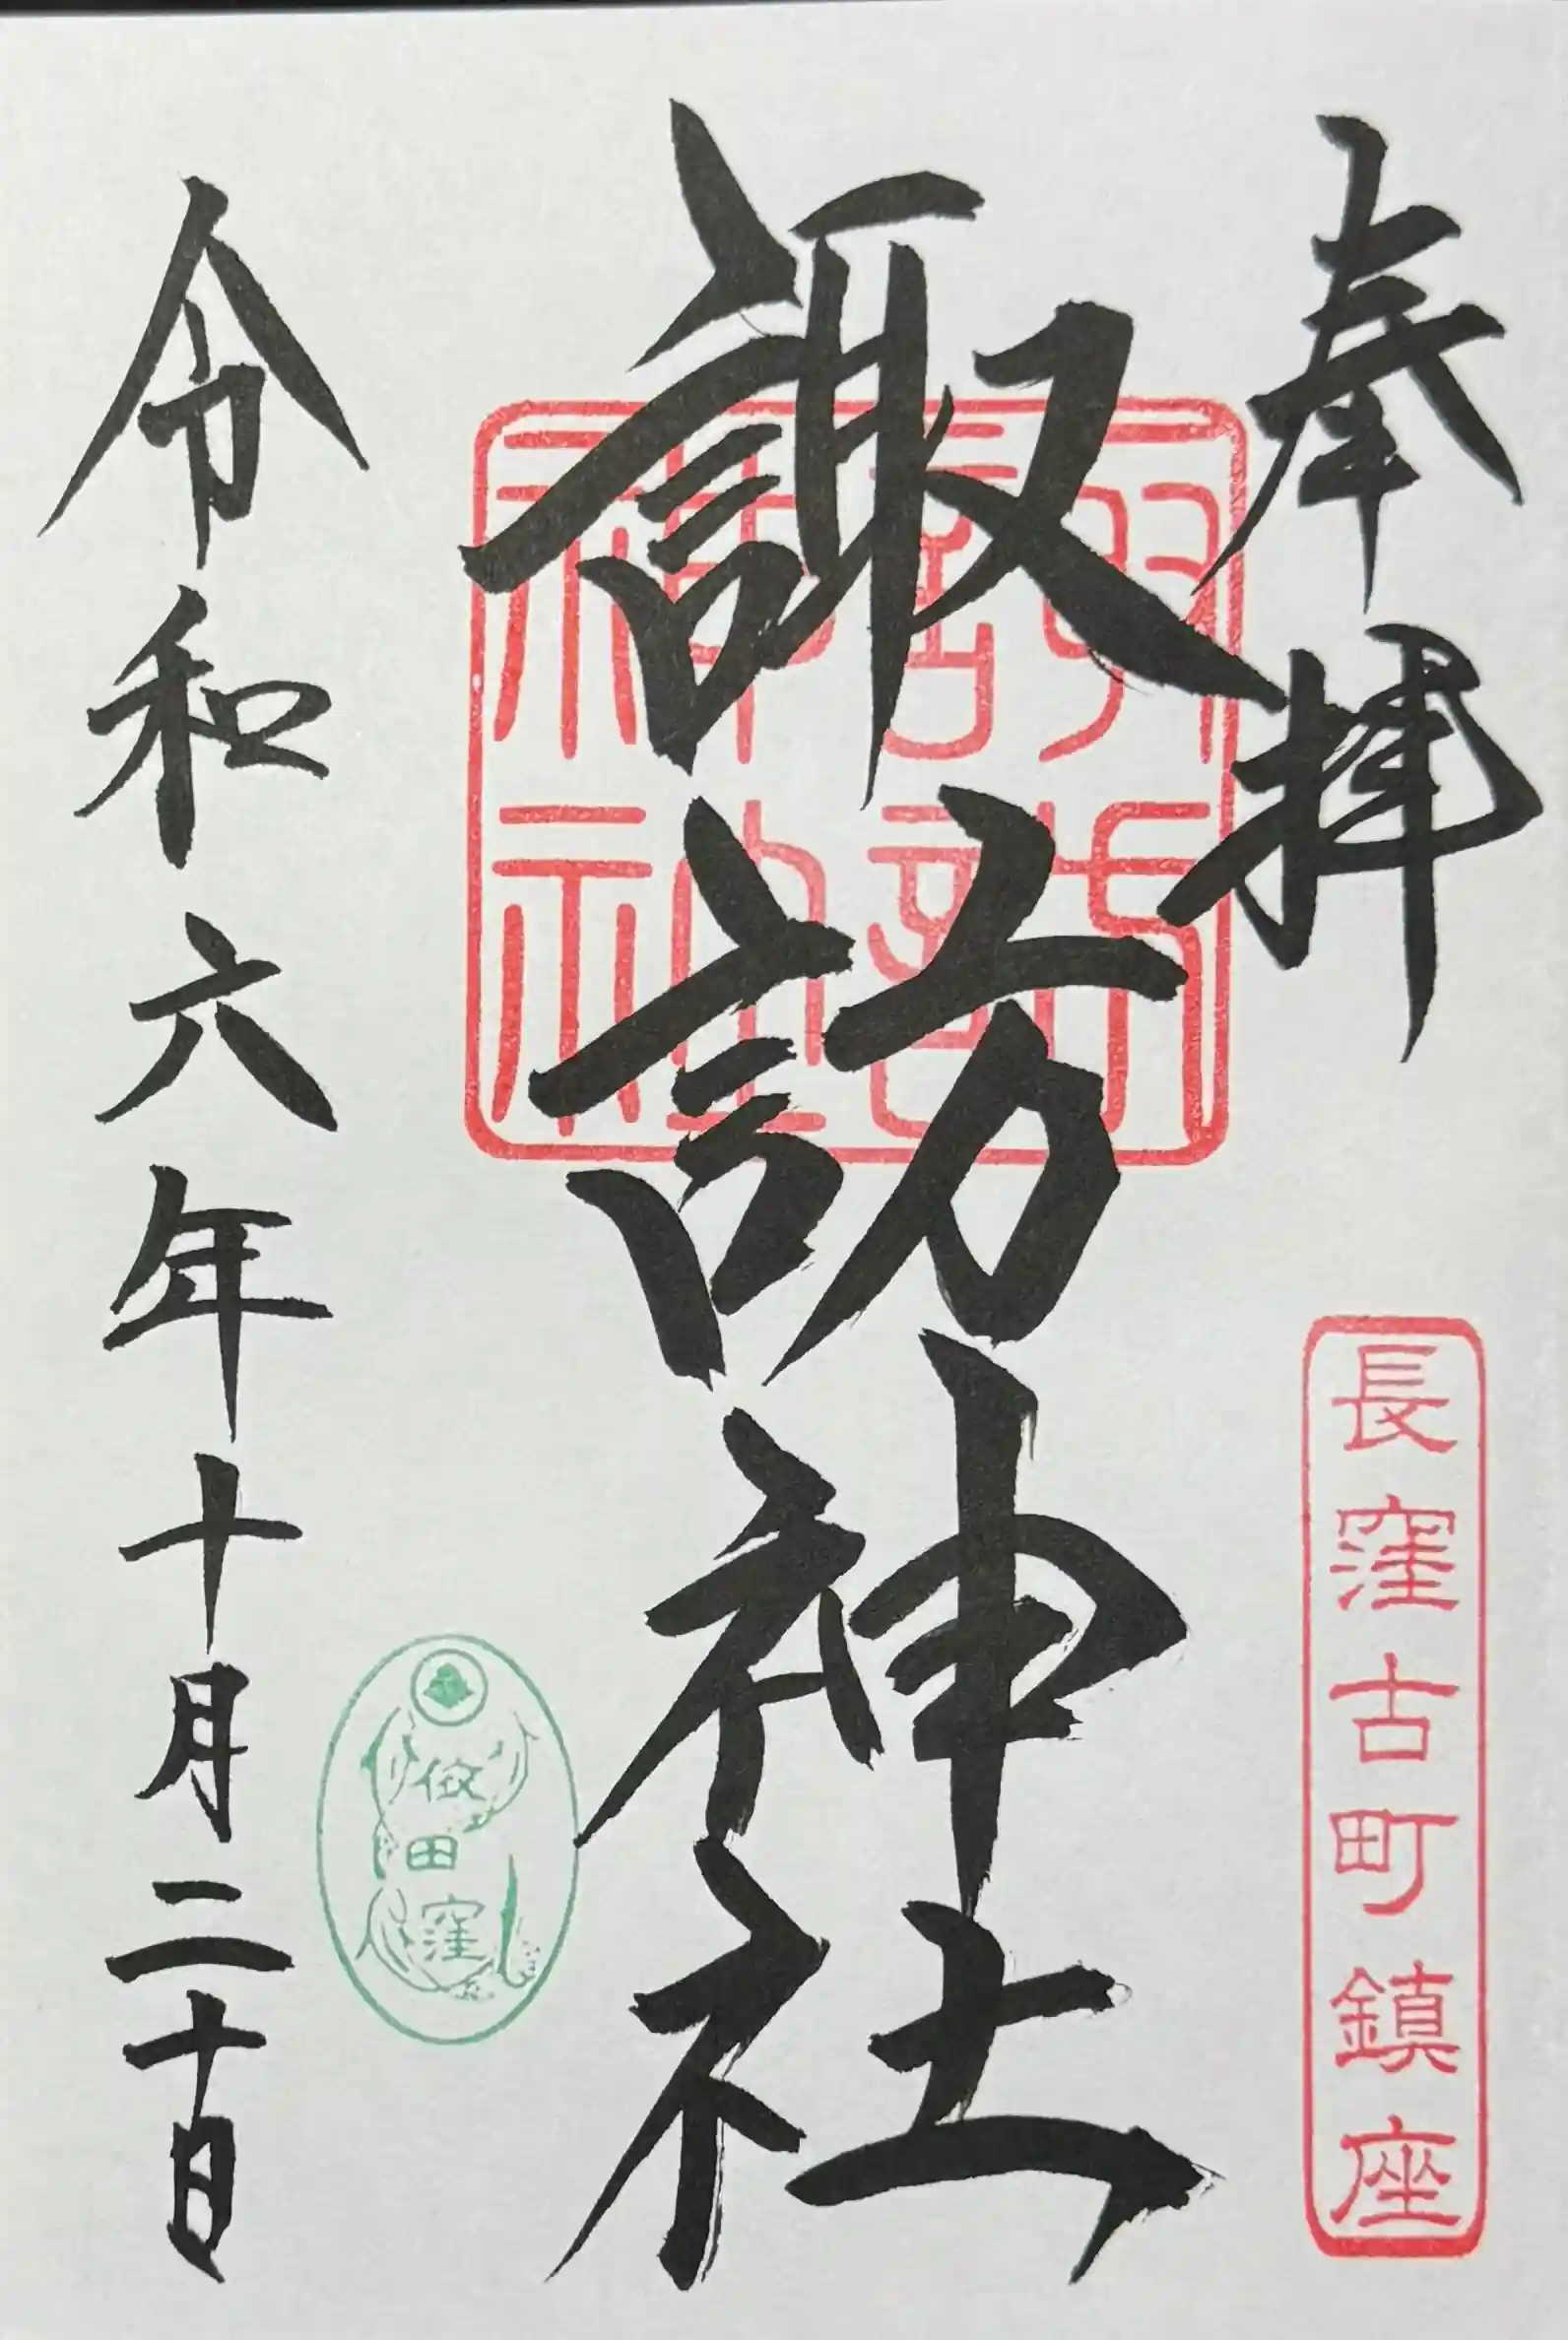 奉拝
長窪古町鎮座
諏訪神社
依田窪
令和六年十月二十日